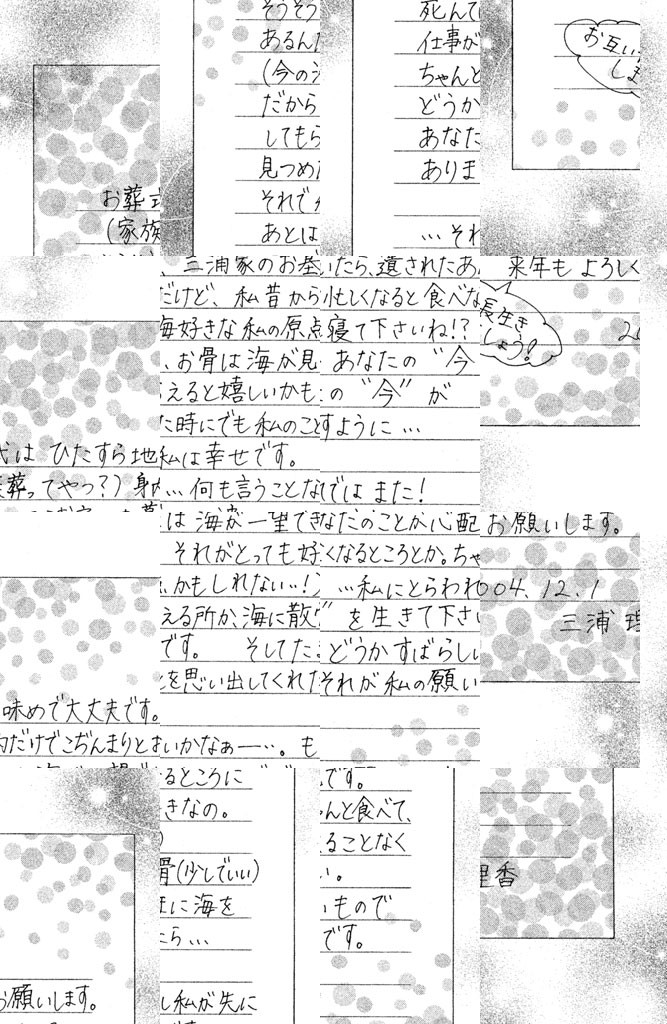 そうそう
あるんだ
(今の
だから
してもら
見つめた
それで
あとは
死んで
仕事が
ちゃんと
どうか
あなた
ありま
…それ
お互い
しま
お葬式
(家族
代は ひたすら地
葬ってやつ?) 身
、三浦家のお墓
だけど、私昔から
海好きな私の原点
、お骨は海が見
らえると嬉しいかも
た時にでも私のこと
私は幸せです。
…何も言うことな
いたら、遺されたあ
忙しくなると食べな
寝て下さいね!?
あなたの "今
の "今" が
すように…
ではまた!
来年も よろしく
長生き
しょう!
20
味めで大丈夫です。
内だけでこぢんまりと
は海が一望でき
それがとっても好
かもしれない…!)
える所か、海に散
です。 そしてた
を思い出してくれた
まいかなぁ…。も
なたのことが心配
くなるところとか。ちゃ
…私にとらわれ
" を生きて下さい
どうかすばらしい
それが私の願い
お願いします。
04.12.1
三浦 理
お願いします。
るところに
きなの。
)
骨(少しでいい)
まに海を
たら…
し私が先に
です。
ゃんと食べて、
ることなく
い。
いもので
です。
理香